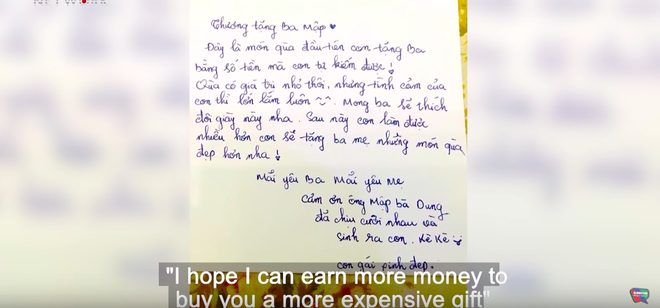 Thương tặng Ba Mập ♥
Đây là món quà đầu tiên con tặng Ba
bằng số tiền mà con tự kiếm được!
Quà có giá trị nhỏ thôi, nhưng tình cảm của
con thì lớn lắm luôn ~~. Mong ba sẽ thích
đôi giày này nha. Sau này con làm được
nhiều hơn con sẽ tặng ba mẹ những món quà
đẹp hơn nha!
Mãi yêu Ba Mãi yêu Mẹ
Cảm ơn ông Mập bà Dung
đã chịu cưới nhau và
sinh ra con. Kè Kè
con gái pinh đẹp.
"I hope I can earn more money to
buy you a more expensive gift"